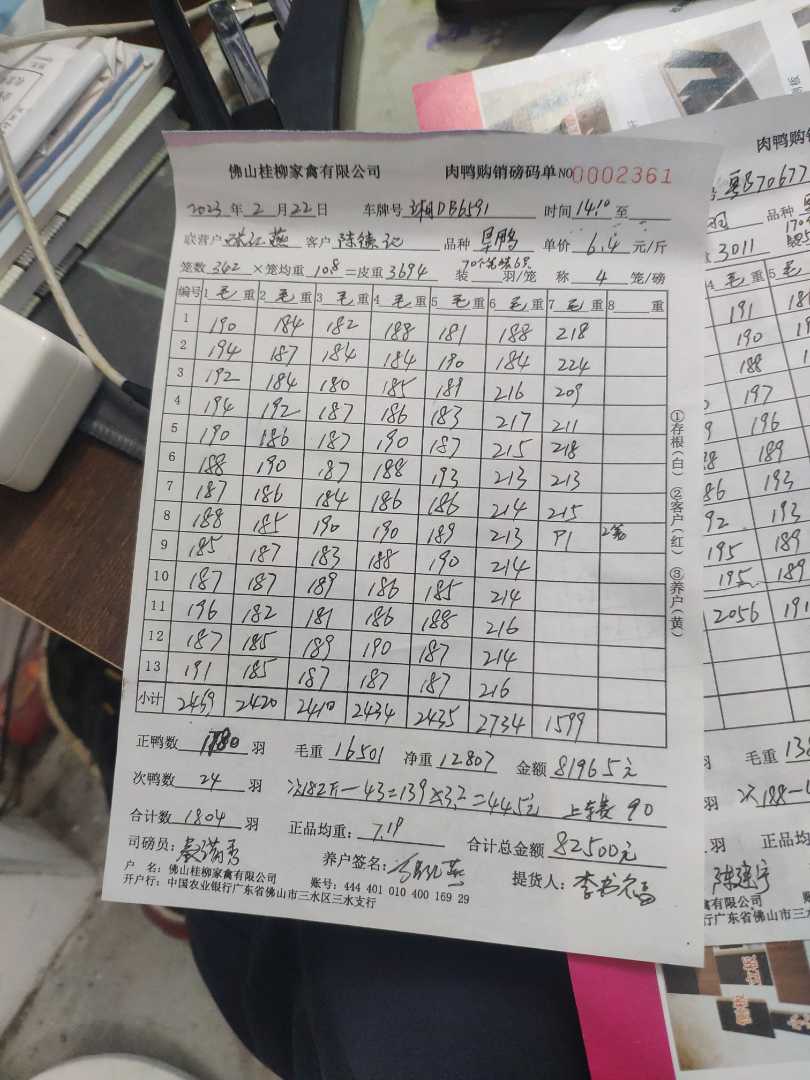 佛山桂柳家禽有限公司 肉鸭购销磅码单 NO 0002361
2023年2月22日 车牌号 湘DB6591 时间 14:10 至
联营户 客户 陈德记 品种 旱鸭 单价 6.4 元/斤
70个笼装6只
笼数 342 ×笼均重 10.8 =皮重 3694 装 羽/笼 称 4 笼/磅
编号 1 毛 重 2 毛 重 3 毛 重 4 毛 重 5 毛 重 6 毛 重 7 毛 重 8 重
1 190 184 182 188 181 188 218
2 194 187 184 184 190 184 224
3 192 184 180 185 189 216 209
4 194 192 187 186 183 217 211
5 190 186 187 190 187 215 218
6 188 190 187 188 193 213 213
7 187 186 184 186 186 214 215
8 188 185 190 190 189 213 91 2笼
9 185 187 183 188 190 214
10 187 187 189 186 185 214
11 196 182 181 186 188 216
12 187 185 189 190 187 214
13 191 185 187 187 187 216
小计 2459 2420 2410 2434 2435 2734 1599
正鸭数 1780 羽 毛重 16501 净重 12807 金额 81965元
次鸭数 24 羽 次182斤-43=139×3.2=445元 上车费 90
合计数 1804 羽 正品均重: 7.19 合计总金额 82500元
司磅员: 养户签名: 提货人:
户 名: 佛山桂柳家禽有限公司 账号: 444 401 010 400 169 29
开户行: 中国农业银行广东省佛山市三水区三水支行
①存根(白) ②客户(红) ③养户(黄)
肉鸭购销
粤B70677
羽 品种
3011
4 毛 重 5
191
190
188
197
196 189
193
193
195 189
195 189
2056
羽 毛重
羽 次188
羽 正品均
有限公司
行广东省佛山市三水